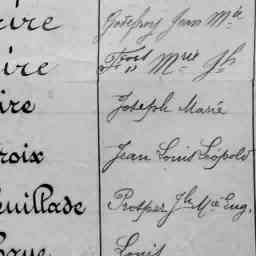 ire Godefroy Jean Mie
ire Frois Mrie Jh
ire Joseph Marie
roix Jean Louis Léopold
uillade Prosper Jh Mie Eug.
Louis